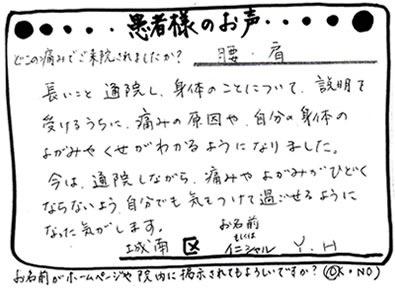 患者様のお声
どこの痛みでご来院されましたか? 腰・肩
長いこと通院し、身体のことについて、説明を
受けるうちに、痛みの原因や、自分の身体の
ゆがみやくせがわかるようになりました。
今は、通院しながら、痛みやゆがみがひどく
ならないよう、自分でも気をつけて過ごせるように
なった気がします。
城南区 お名前もしくはイニシャル Y.H
お名前がホームページや院内に掲示されてもよろしいですか?(OK・NO)